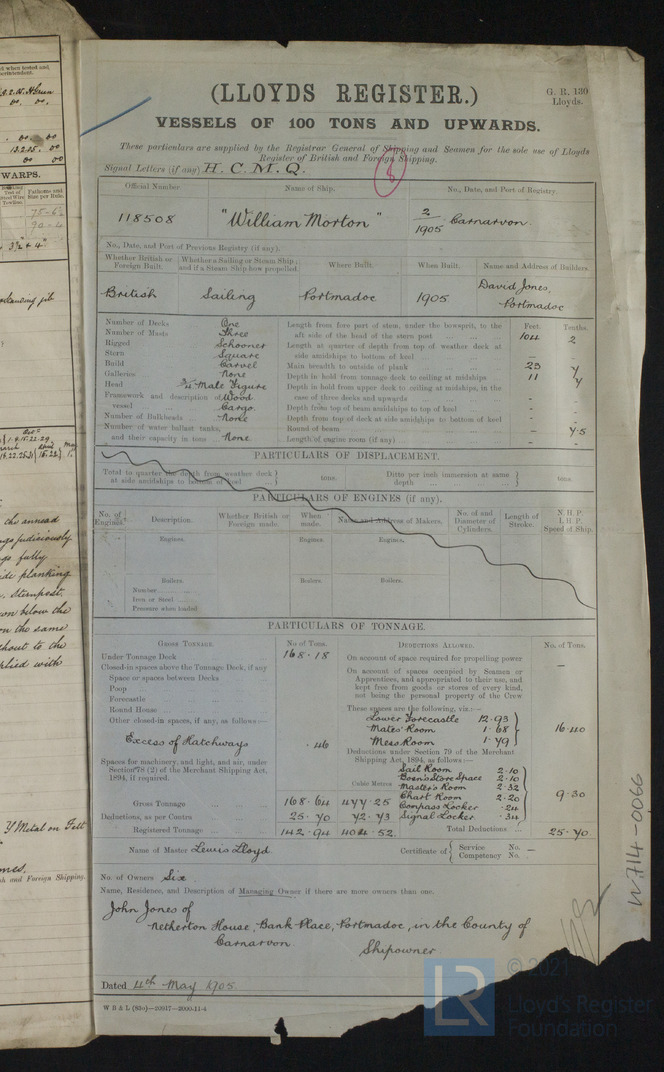 (LLOYDS REGISTER.)
G. R. 130
Lloyds.
VESSELS OF 100 TONS AND UPWARDS.
These particulars are supplied by the Registrar General of Shipping and Seamen for the sole use of Lloyds
Register of British and Foreign Shipping.
Signal Letters (if any) H. C. M. Q.
8
Official Number Name of Ship. No., Date, and Port of Registry.
118508 "William Morton" 2/1905 Carnarvon.
No., Date, and Port of Previous Registry (if any).
Whether British or Foreign Built. Whether a Sailing or Steam Ship; and if a Steam Ship how propelled. Where Built. When Built. Name and Address of Builders.
British Sailing Portmadoc 1905 David Jones, Portmadoc
Feet. Tenths.
Number of Decks One
Number of Masts Three
Rigged Schooner
Stern Square
Build Carvel
Galleries None
Head 3/4 Male Figure
Framework and description of vessel Wood. Cargo.
Number of Bulkheads None
Number of water ballast tanks, and their capacity in tons None
Length from fore part of stem, under the bowsprit, to the aft side of the head of the stern post 104 2
Length at quarter of depth from top of weather deck at side amidships to bottom of keel - -
Main breadth to outside of plank 23 7
Depth in hold from tonnage deck to ceiling at midships 11 7
Depth in hold from upper deck to ceiling at midships, in the case of three decks and upwards - -
Depth from top of beam amidships to top of keel - -
Depth from top of deck at side amidships to bottom of keel - -
Round of beam - 4.5
Length of engine room (if any) - -
PARTICULARS OF DISPLACEMENT.
Total to quarter the depth from weather deck at side amidships to bottom of keel } tons. Ditto per inch immersion at same depth } tons.
PARTICULARS OF ENGINES (if any).
No. of Engines Description. Whether British or Foreign made. When made. Name and Address of Makers. No. of and Diameter of Cylinders. Length of Stroke. N. H. P. I. H. P. Speed of Ship.
Engines. Engines Engines.
Boilers. Boilers. Boilers.
Number
Iron or Steel
Pressure when loaded
PARTICULARS OF TONNAGE.
GROSS TONNAGE. No of Tons. DEDUCTIONS ALLOWED. No. of Tons.
Under Tonnage Deck 168.18
Closed-in spaces above the Tonnage Deck, if any
Space or spaces between Decks
Poop
Forecastle
Round House
Other closed-in spaces, if any, as follows:—
Excess of Hatchways .46
Spaces for machinery, and light, and air, under Section 78 (2) of the Merchant Shipping Act, 1894, if required.
Cubic Metres
Gross Tonnage 168.64 477.25
Deductions, as per Contra 25.70 72.73
Registered Tonnage 142.94 404.52
On account of space required for propelling power —
On account of spaces occupied by Seamen or Apprentices, and appropriated to their use, and kept free from goods or stores of every kind, not being the personal property of the Crew
These spaces are the following, viz.:—
Lower Forecastle 12.93
Mates' Room 1.68
Mess Room 1.79
16.40
Deductions under Section 79 of the Merchant Shipping Act, 1894, as follows:—
Sail Room 2.10
Bosn's Store Space 2.10
Master's Room 2.32
Chart Room 2.20
Compass Locker .24
Signal Locker .34
9.30
Total Deductions 25.70
Name of Master Lewis Lloyd. Certificate of { Service No. — Competency No.
No. of Owners Six
Name, Residence, and Description of Managing Owner if there are more owners than one.
John Jones of
Netherton House, Bank Place, Portmadoc, in the County of
Carnarvon.
Shipowner.
Dated 4th May 1905.
W B & L (89o)—20917—2000-11-4
W714-0066
LR
© 2021
Lloyd's Register
Foundation
WARPS.
the annead
judiciously
fully
planking
Sternpost,
below the
on the same
to the
with
Y Metal on Felt
and Foreign Shipping.